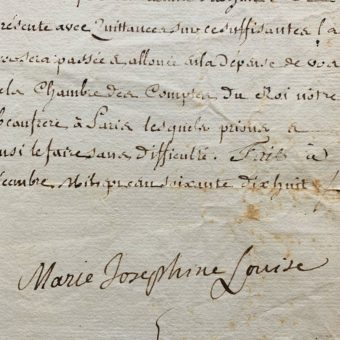 resente avec Quittances sur ce suffisantes la
sera passée & allouée a la Depense de vos
la Chambre des Comptes du Roi notre
beaufrere à Paris lesquels prions &
nsi le faire sans difficulté. Fait à
cembre Mil sept cent soixante dix huit
Marie Josephine Louise